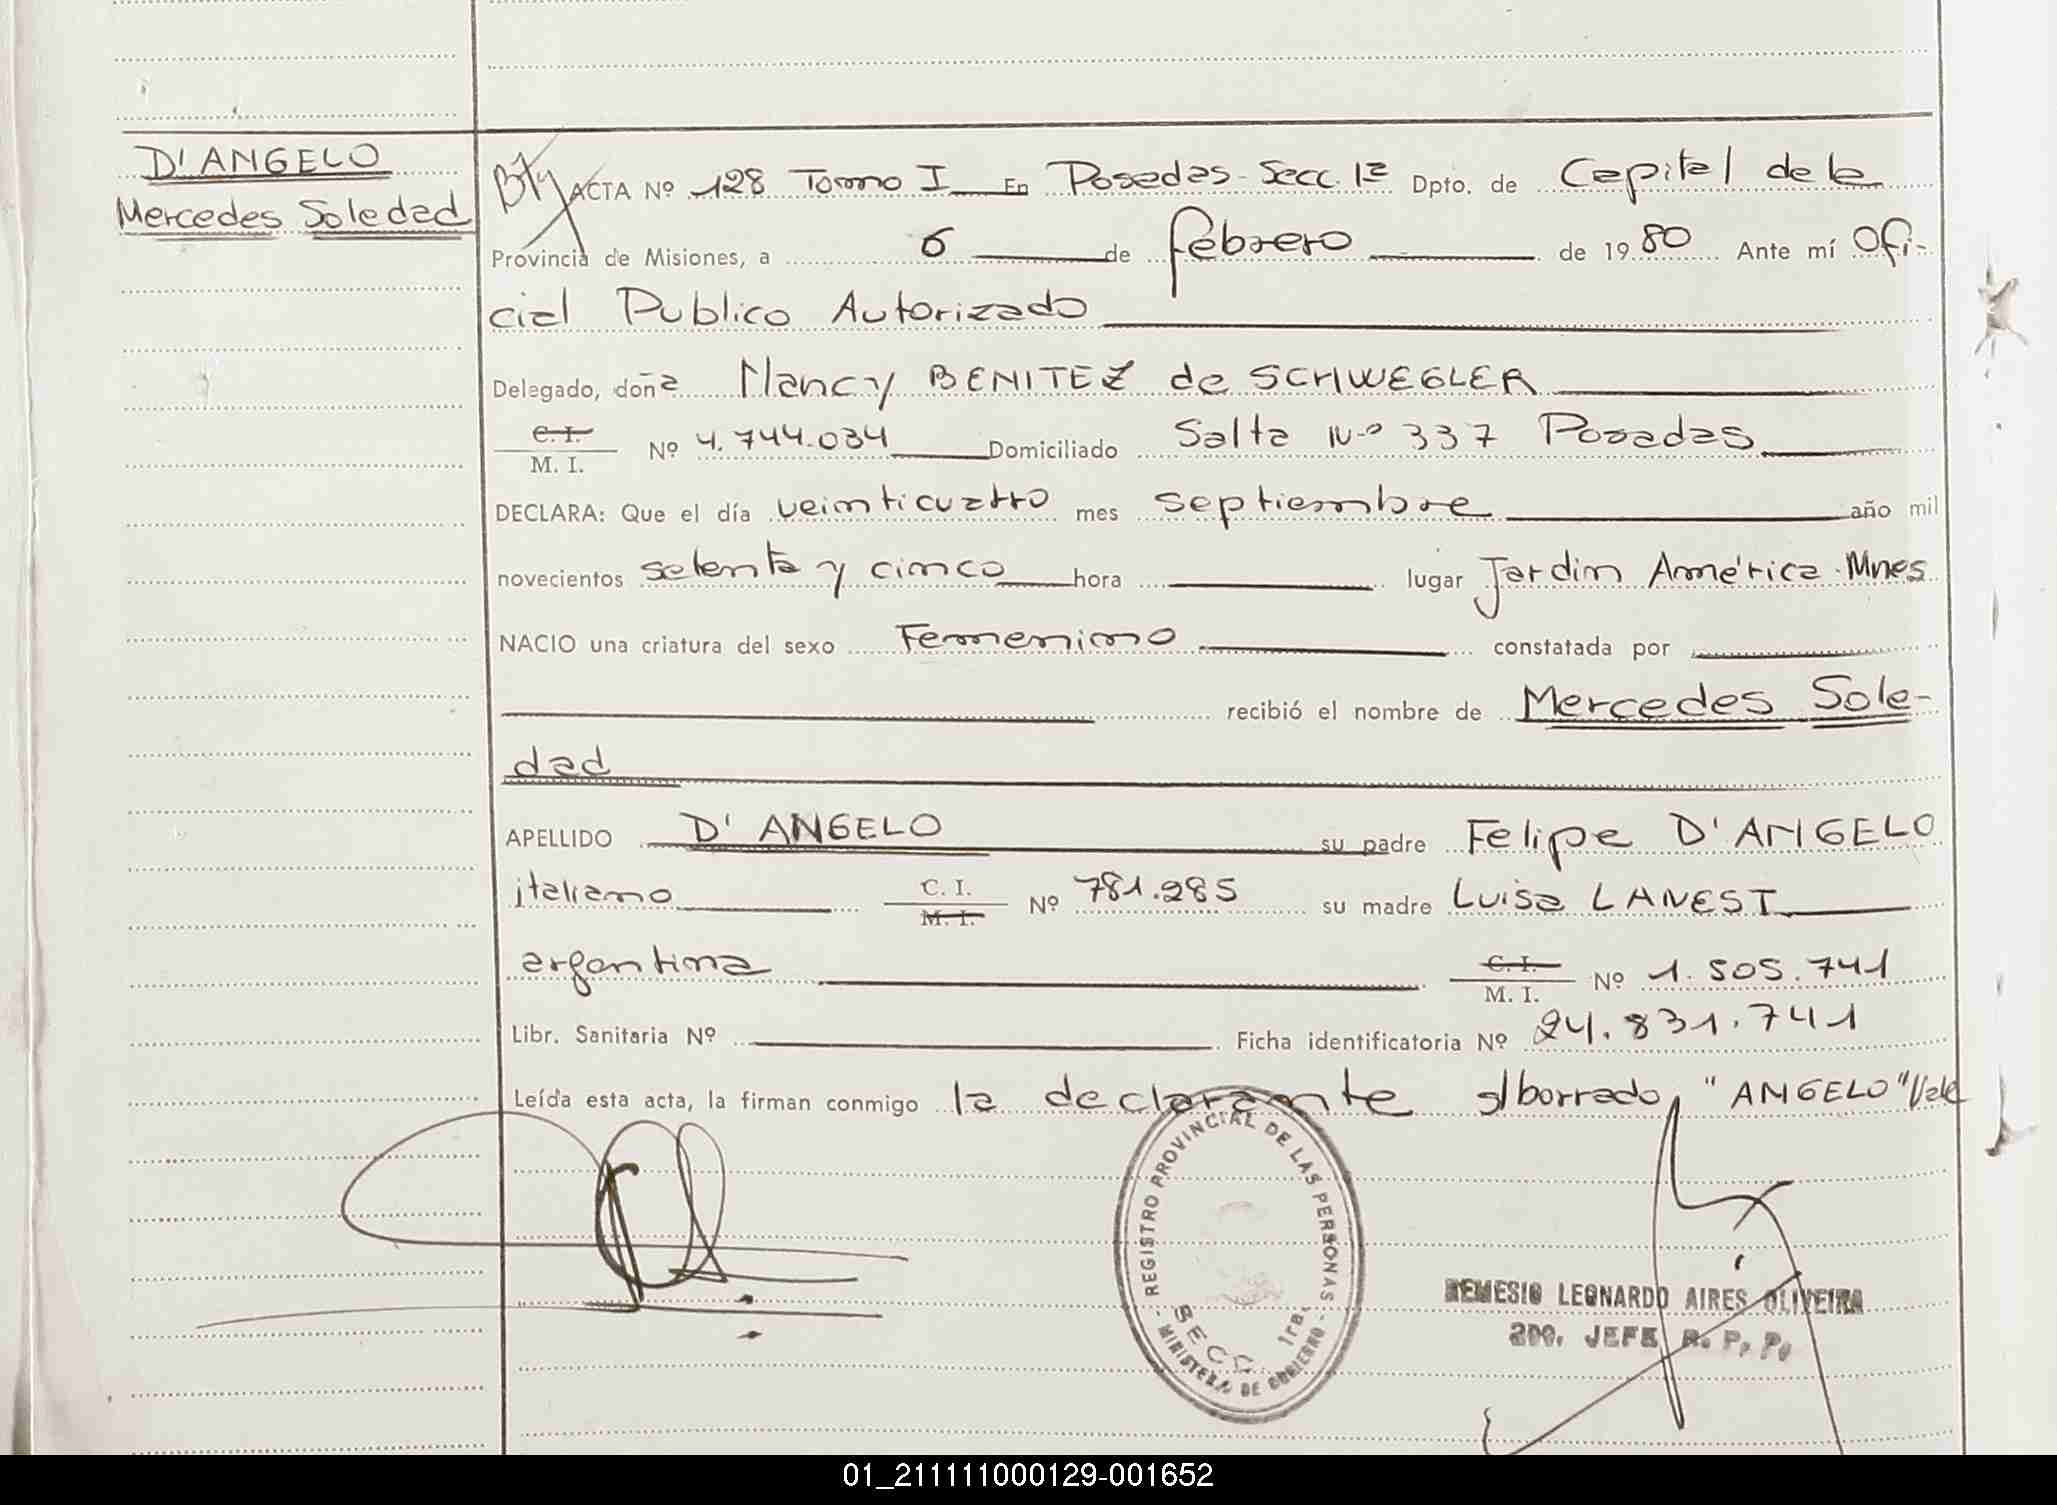 D' ANGELO
Mercedes Soledad
ACTA Nº 128 Tomo I En Posadas - Secc. 1ª Dpto. de Capital de la
Provincia de Misiones, a 6 de febrero de 1980 Ante mí Ofi-
cial Publico Autorizado
Delegado, doña Nancy BENITEZ de SCHWEGLER
C. I.
M. I. Nº 4.744.034 Domiciliado Salta Nº 337 Posadas
DECLARA: Que el día veinticuatro mes septiembre año mil
novecientos setenta y cinco hora lugar Jardin América - Mnes
NACIO una criatura del sexo Femenino constatada por
recibió el nombre de Mercedes Sole-
dad
APELLIDO D' ANGELO su padre Felipe D' ANGELO
italiano C. I. M. I. Nº 781.285 su madre Luisa LANEST
argentina C. I. M. I. Nº 1.505.741
Libr. Sanitaria Nº Ficha identificatoria Nº 24.831.741
Leída esta acta, la firman conmigo la declarante s/borrado, "ANGELO" Vale
REGISTRO PROVINCIAL DE LAS PERSONAS
SECC. 1ra.
MINISTERIO DE GOBIERNO
NEMESIO LEONARDO AIRES OLIVEIRA
2DO. JEFE R. P. P.
01_211111000129-001652